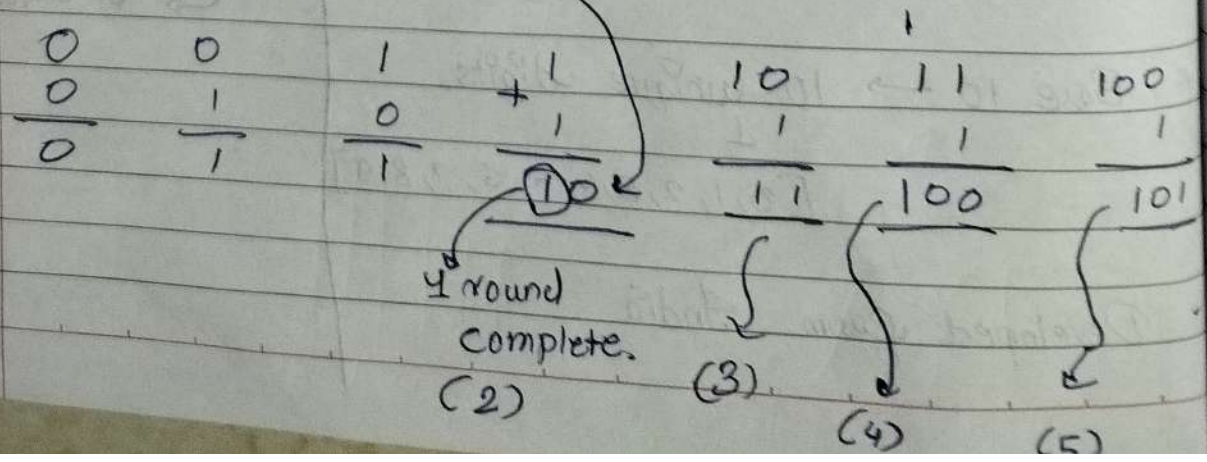 1
0 0 1 1 10 11 100
0 1 0 + 1 1 1 1
0 1 1 10 11 100 101
1 round
complete.
(2) (3) (4) (5)